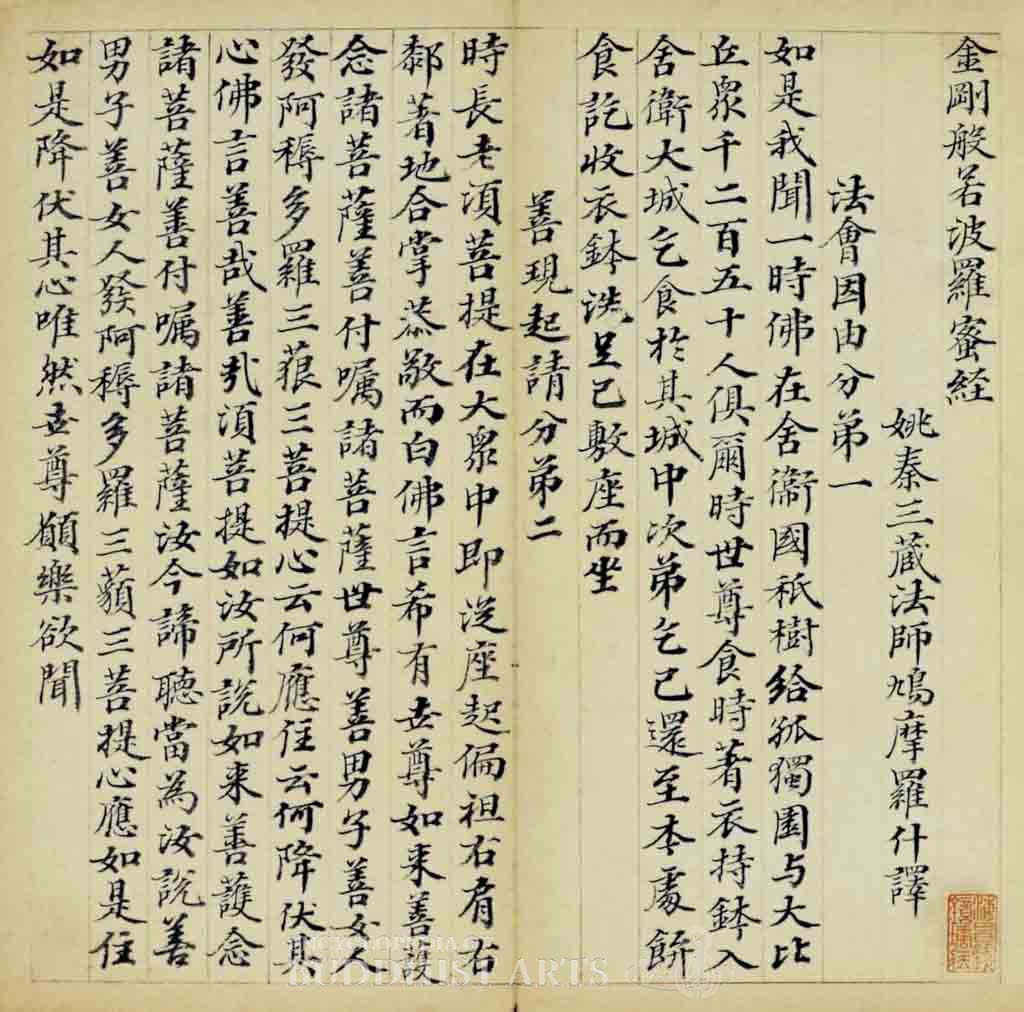 金剛般若波羅蜜経
姚秦三蔵法師鳩摩羅什譯
法會因由分弟一
如是我聞一時佛在舍衛國祇樹給孤獨園与大比
丘眾千二百五十人俱爾時世尊食時著衣持鉢入
舍衛大城乞食於其城中次弟乞已還至本處飰
食訖收衣鉢洗足已敷座而坐
善現起請分弟二
時長老湏菩提在大眾中即從座起偏袒右肩右
厀著地合掌恭敬而白佛言希有世尊如来善護
念諸菩薩善付嘱諸菩薩世尊善男子善女人
發阿耨多羅三藐三菩提心云何應住云何降伏其
心佛言善哉善哉湏菩提如汝所說如来善護念
諸菩薩善付嘱諸菩薩汝今諦聽當為汝說善
男子善女人發阿耨多羅三藐三菩提心應如是住
如是降伏其心唯然世尊願樂欲聞
ENCYCLOPEDIA of
BUDDHIST ARTS